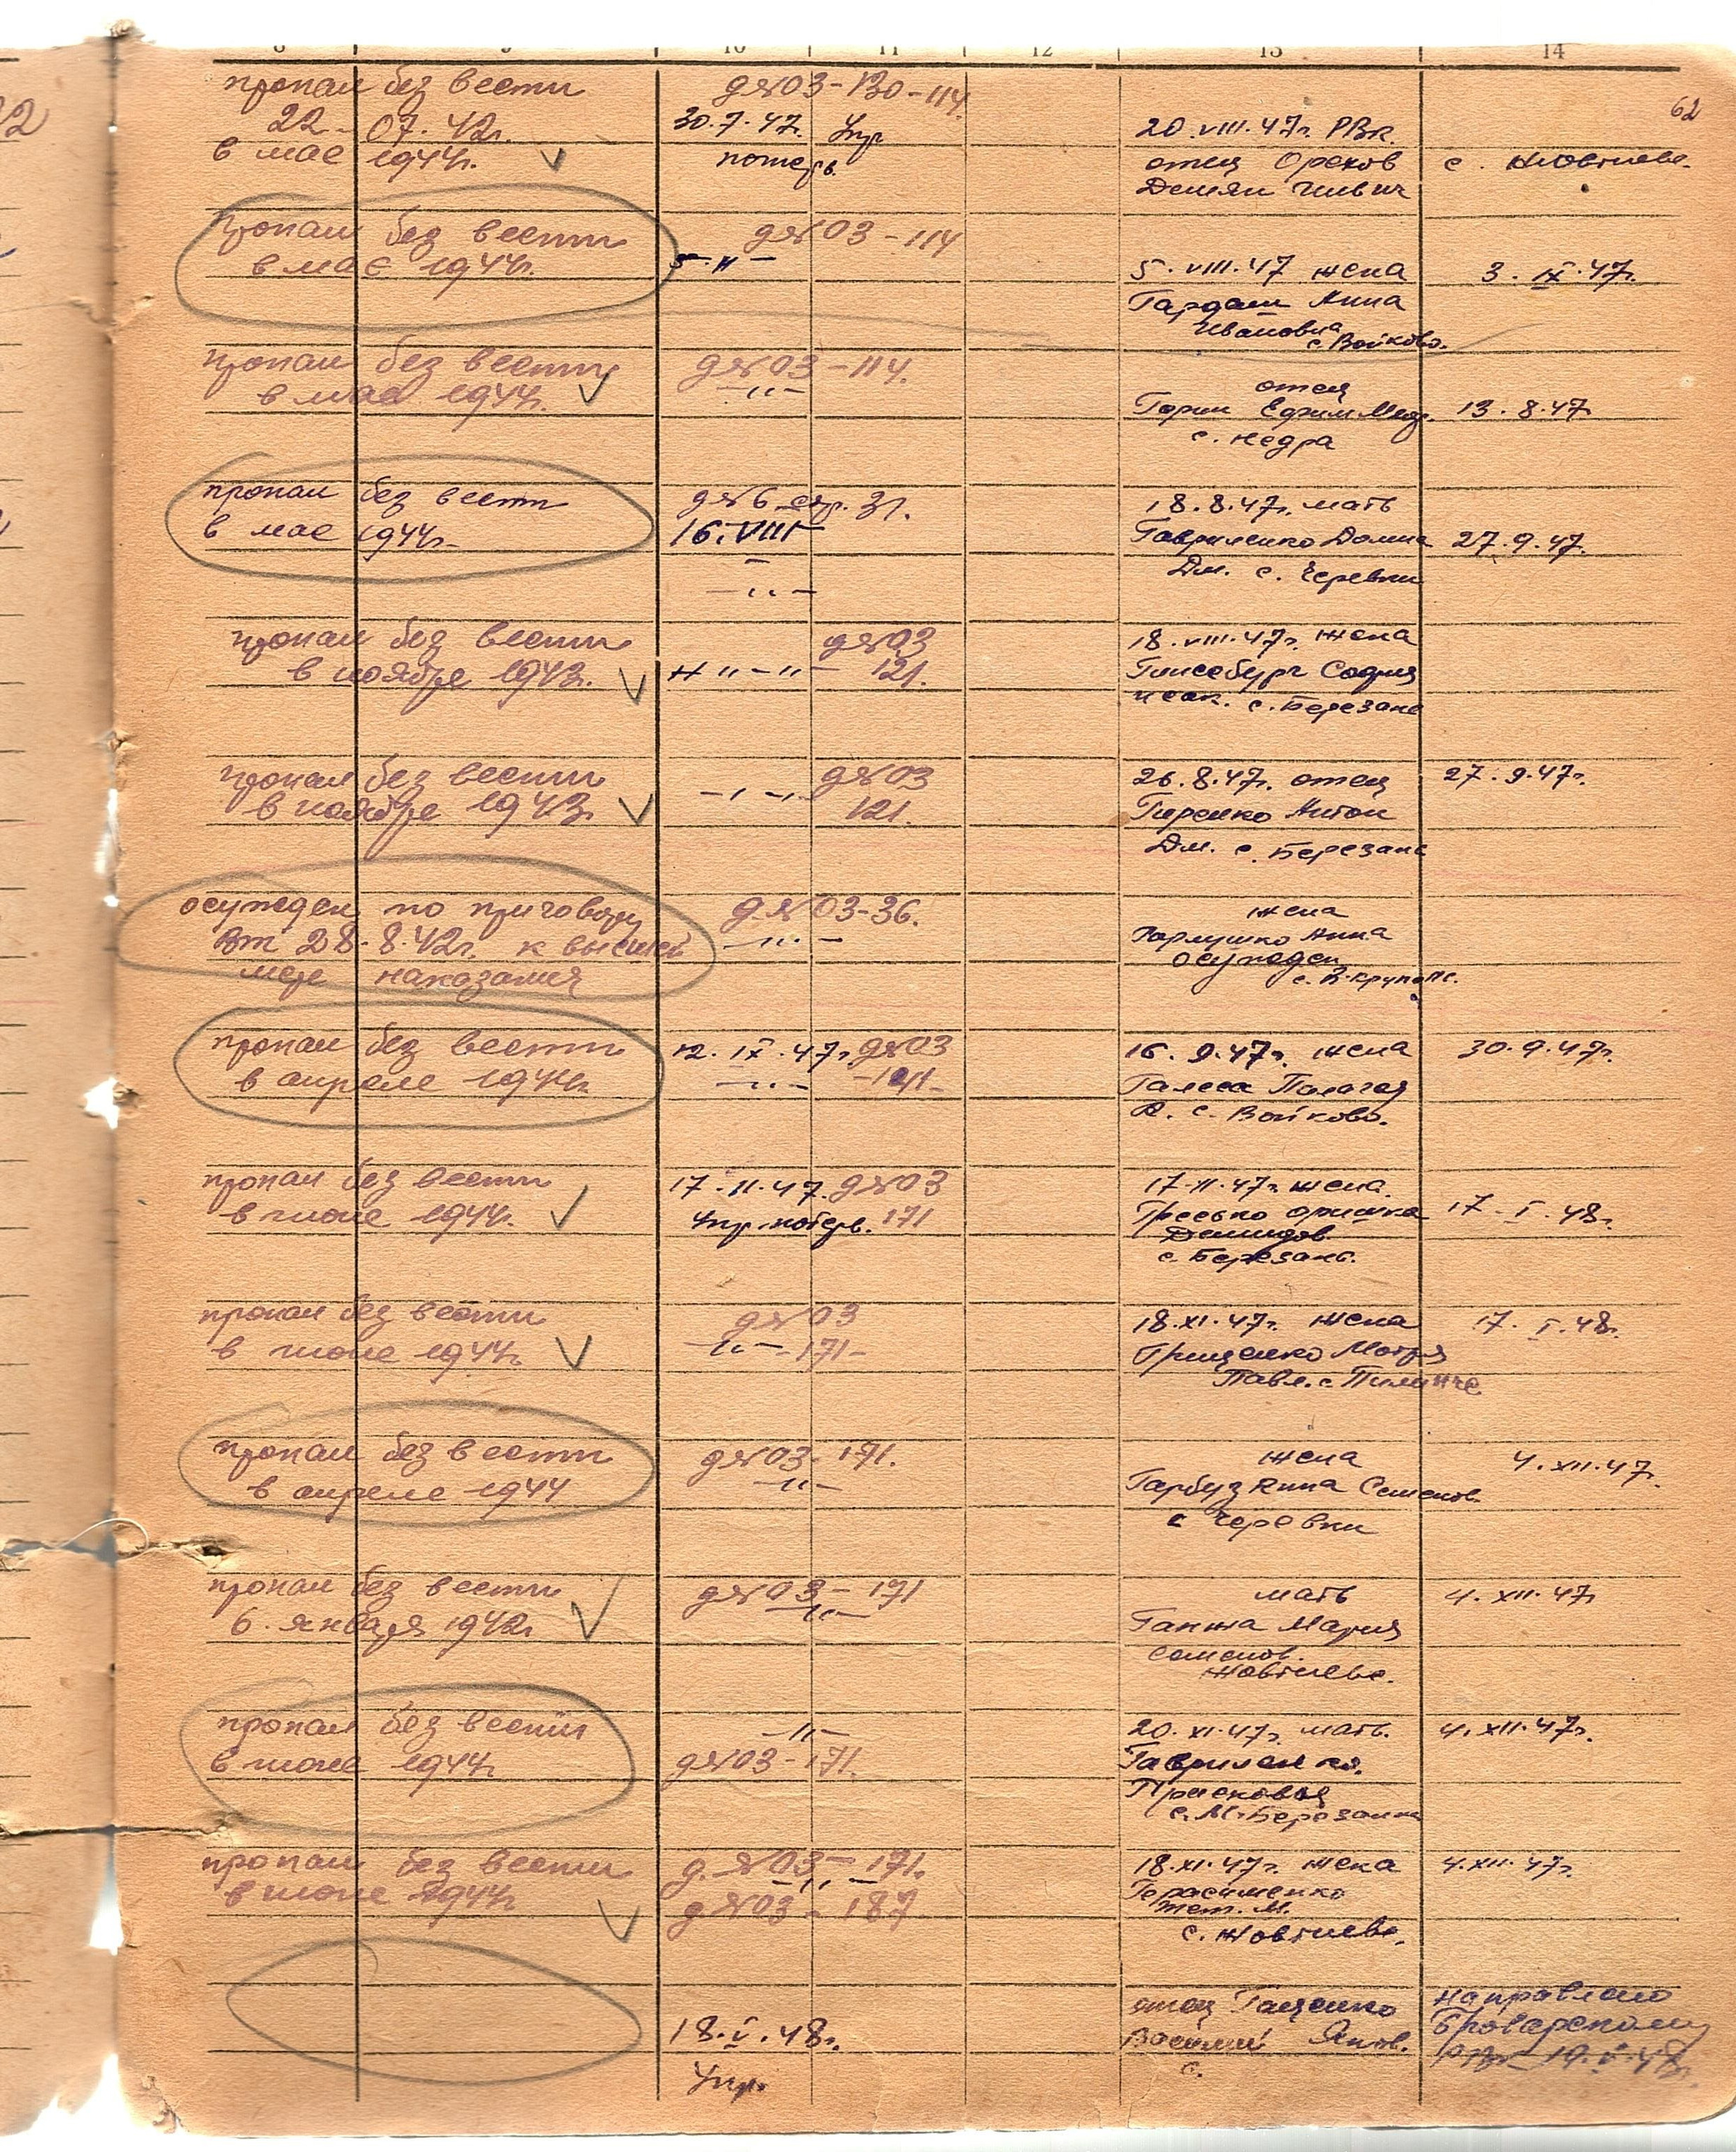 8 9 10 11 12 13 14
62
пропал без вести
22-07.42г.
в мае 1944г.
д№03-130-114
30.7.47г. Упр
потерь.
20.VIII.47г. РВК.
отец Орехов
Демян
с. Жовтнево.
пропал без вести
в мае 1944г.
д№03-114
5-II-
5.VIII.47 жена
Гардаш Анна
Ивановна
с. Войково.
3.IX.47г.
пропал без вести
в мае 1944г.
д№03-114.
-"-
отец
Горин Ефим
с. Недра
13.8.47
пропал без вести
в мае 1944г.
д№6 стр. 31.
16.VIII
-"-
18.8.47г. мать
Гавриленко Домна
Дм. с. Черевки
27.9.47.
пропал без вести
в ноябре 1943г.
д№03
121.
18.VIII.47г. жена
София
Исак. с. Березань
пропал без вести
в ноябре 1943г.
д№03
121.
26.8.47г. отец
Гиренко Антон
Дм. с. Березань
27.9.47г.
осужден по приговору
ВТ 28.8.42г. к высшей
мере наказания
д.№03-36.
-"-
жена
Гарлушко Анна
осужден
с. В-Крупол.
пропал без вести
в апреле 1944г.
12.IX.47г. д№03
-"- -121-
16.9.47г. жена
Палагея
с. Войково.
30.9.47г.
пропал без вести
в июне 1944г.
17.11.47. д№03
Упр. потерь. 171
17.11.47г. жена
Оришка
Демидов.
с. Березань.
17.I.48г.
пропал без вести
в июне 1944г.
д№03
-"- -171-
18.XI.47г. жена
Грищенко Мотря
Павл. с. Пилипче
17.I.48г.
пропал без вести
в апреле 1944
д№03-171.
-"-
жена
Гарбуз Анна Семенов.
с Черевки
4.XII.47.
пропал без вести
6. января 1942г
д№03-171
-"-
мать
Ганжа Мария
Семенов.
Жовтнево.
4.XII.47
пропал без вести
в июне 1944г.
-"-
д№03-171.
20.XI.47г. мать.
Гавриленко.
Присковья
с. М-Березанка
4.XII.47г.
пропал без вести
в июне 1944г
д.№03-171.
-"-
д№03-187
18.XI.47г. жена
Герасименко
М.
с. Жовтнево.
4.XII.47г.
18.V.48г.
Упр.
отец Гащенко
Василий Яков.
с.
направлено
Броварскому
РВК 19.V.48г.